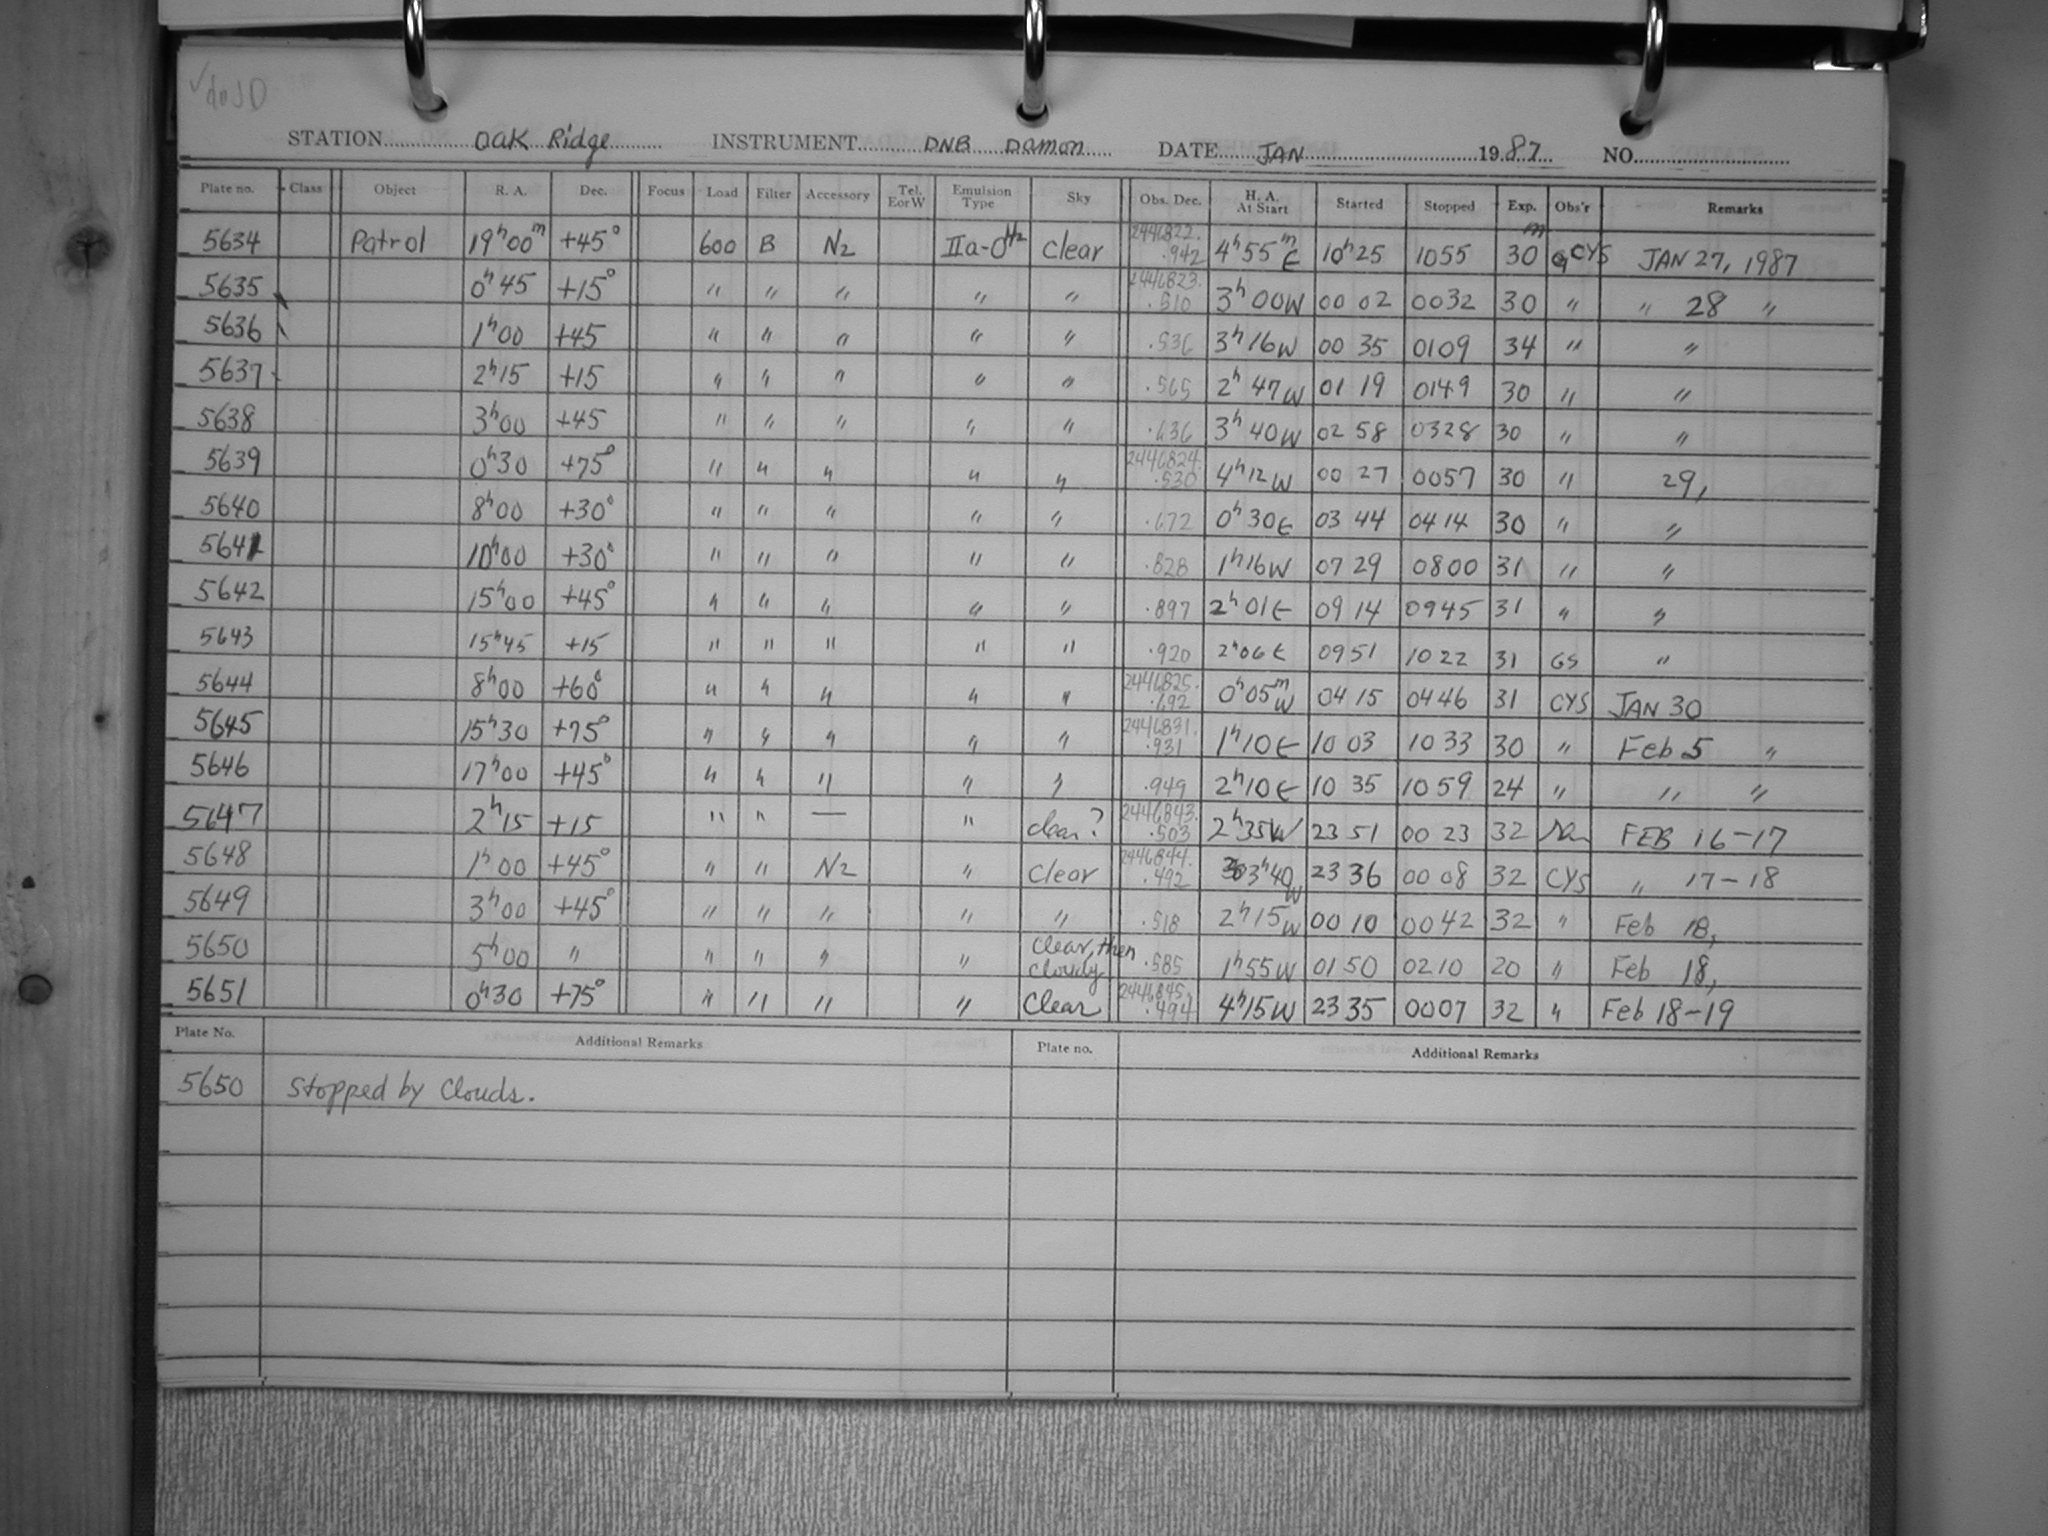 ✓ do JD
STATION Oak Ridge INSTRUMENT DNB Damon DATE JAN 1987 NO.
Plate no. Class Object R. A. Dec. Focus Load Filter Accessory Tel. EorW Emulsion Type Sky Obs. Dec. H. A. At Start Started Stopped Exp. Obs'r Remarks
5634 Patrol 19h00m +45° 600 B N2 IIa-OH2 Clear 2446822.942 4h55mE 10h25 1055 30m CYS JAN 27, 1987
5635 0h45 +15° " " " " " 2446823.510 3h00W 00 02 0032 30 " " 28 "
5636 1h00 +45 " " " " " .536 3h16W 00 35 0109 34 " "
5637 2h15 +15 " " " " " .565 2h47W 01 19 0149 30 " "
5638 3h00 +45 " " " " " .636 3h40W 02 58 0328 30 " "
5639 0h30 +75° " " " " " 2446824.530 4h12W 00 27 0057 30 " 29,
5640 8h00 +30° " " " " " .672 0h30E 03 44 0414 30 " "
5641 10h00 +30° " " " " " .828 1h16W 07 29 0800 31 " "
5642 15h00 +45° " " " " " .897 2h01E 09 14 0945 31 " "
5643 15h45 +15 " " " " " .920 2h06E 0951 1022 31 GS "
5644 8h00 +60° " " " " " 2446825.692 0h05mW 04 15 0446 31 CYS JAN 30
5645 15h30 +75° " " " " " 2446831.931 1h10E 10 03 1033 30 " Feb 5 "
5646 17h00 +45° " " " " " .949 2h10E 10 35 1059 24 " " "
5647 2h15 +15 " " — " clear? 2446843.503 2h35W 23 51 00 23 32 FEB 16-17
5648 1h00 +45° " " N2 " Clear 2446844.492 3h40W 23 36 00 08 32 CYS " 17-18
5649 3h00 +45° " " " " " .518 2h15W 00 10 00 42 32 " Feb 18,
5650 5h00 " " " " " Clear, then cloudy .585 1h55W 01 50 0210 20 " Feb 18,
5651 0h30 +75° " " " " Clear 2446845.494 4h15W 23 35 0007 32 " Feb 18-19
Plate No. Additional Remarks Plate no. Additional Remarks
5650 Stopped by Clouds.